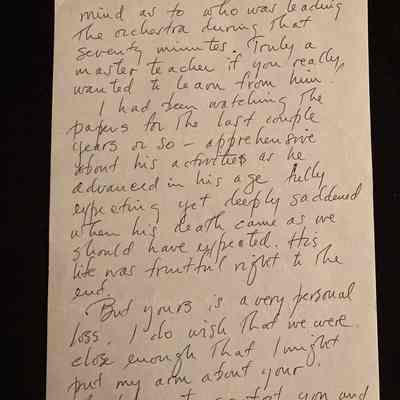 mind as to who was leading
the orchestra during that
seventy minutes. Truly a
master teacher if you really
wanted to learn from him!
I had been watching the
papers for the last couple
years or so – apprehensive
about his activities as he
advanced in his age fully
expecting yet deeply saddened
when his death came as we
should have expected. His
life was fruitful right to the
end.
But yours is a very personal
loss. I do wish that we were
close enough that I might
put my arm about your
you and